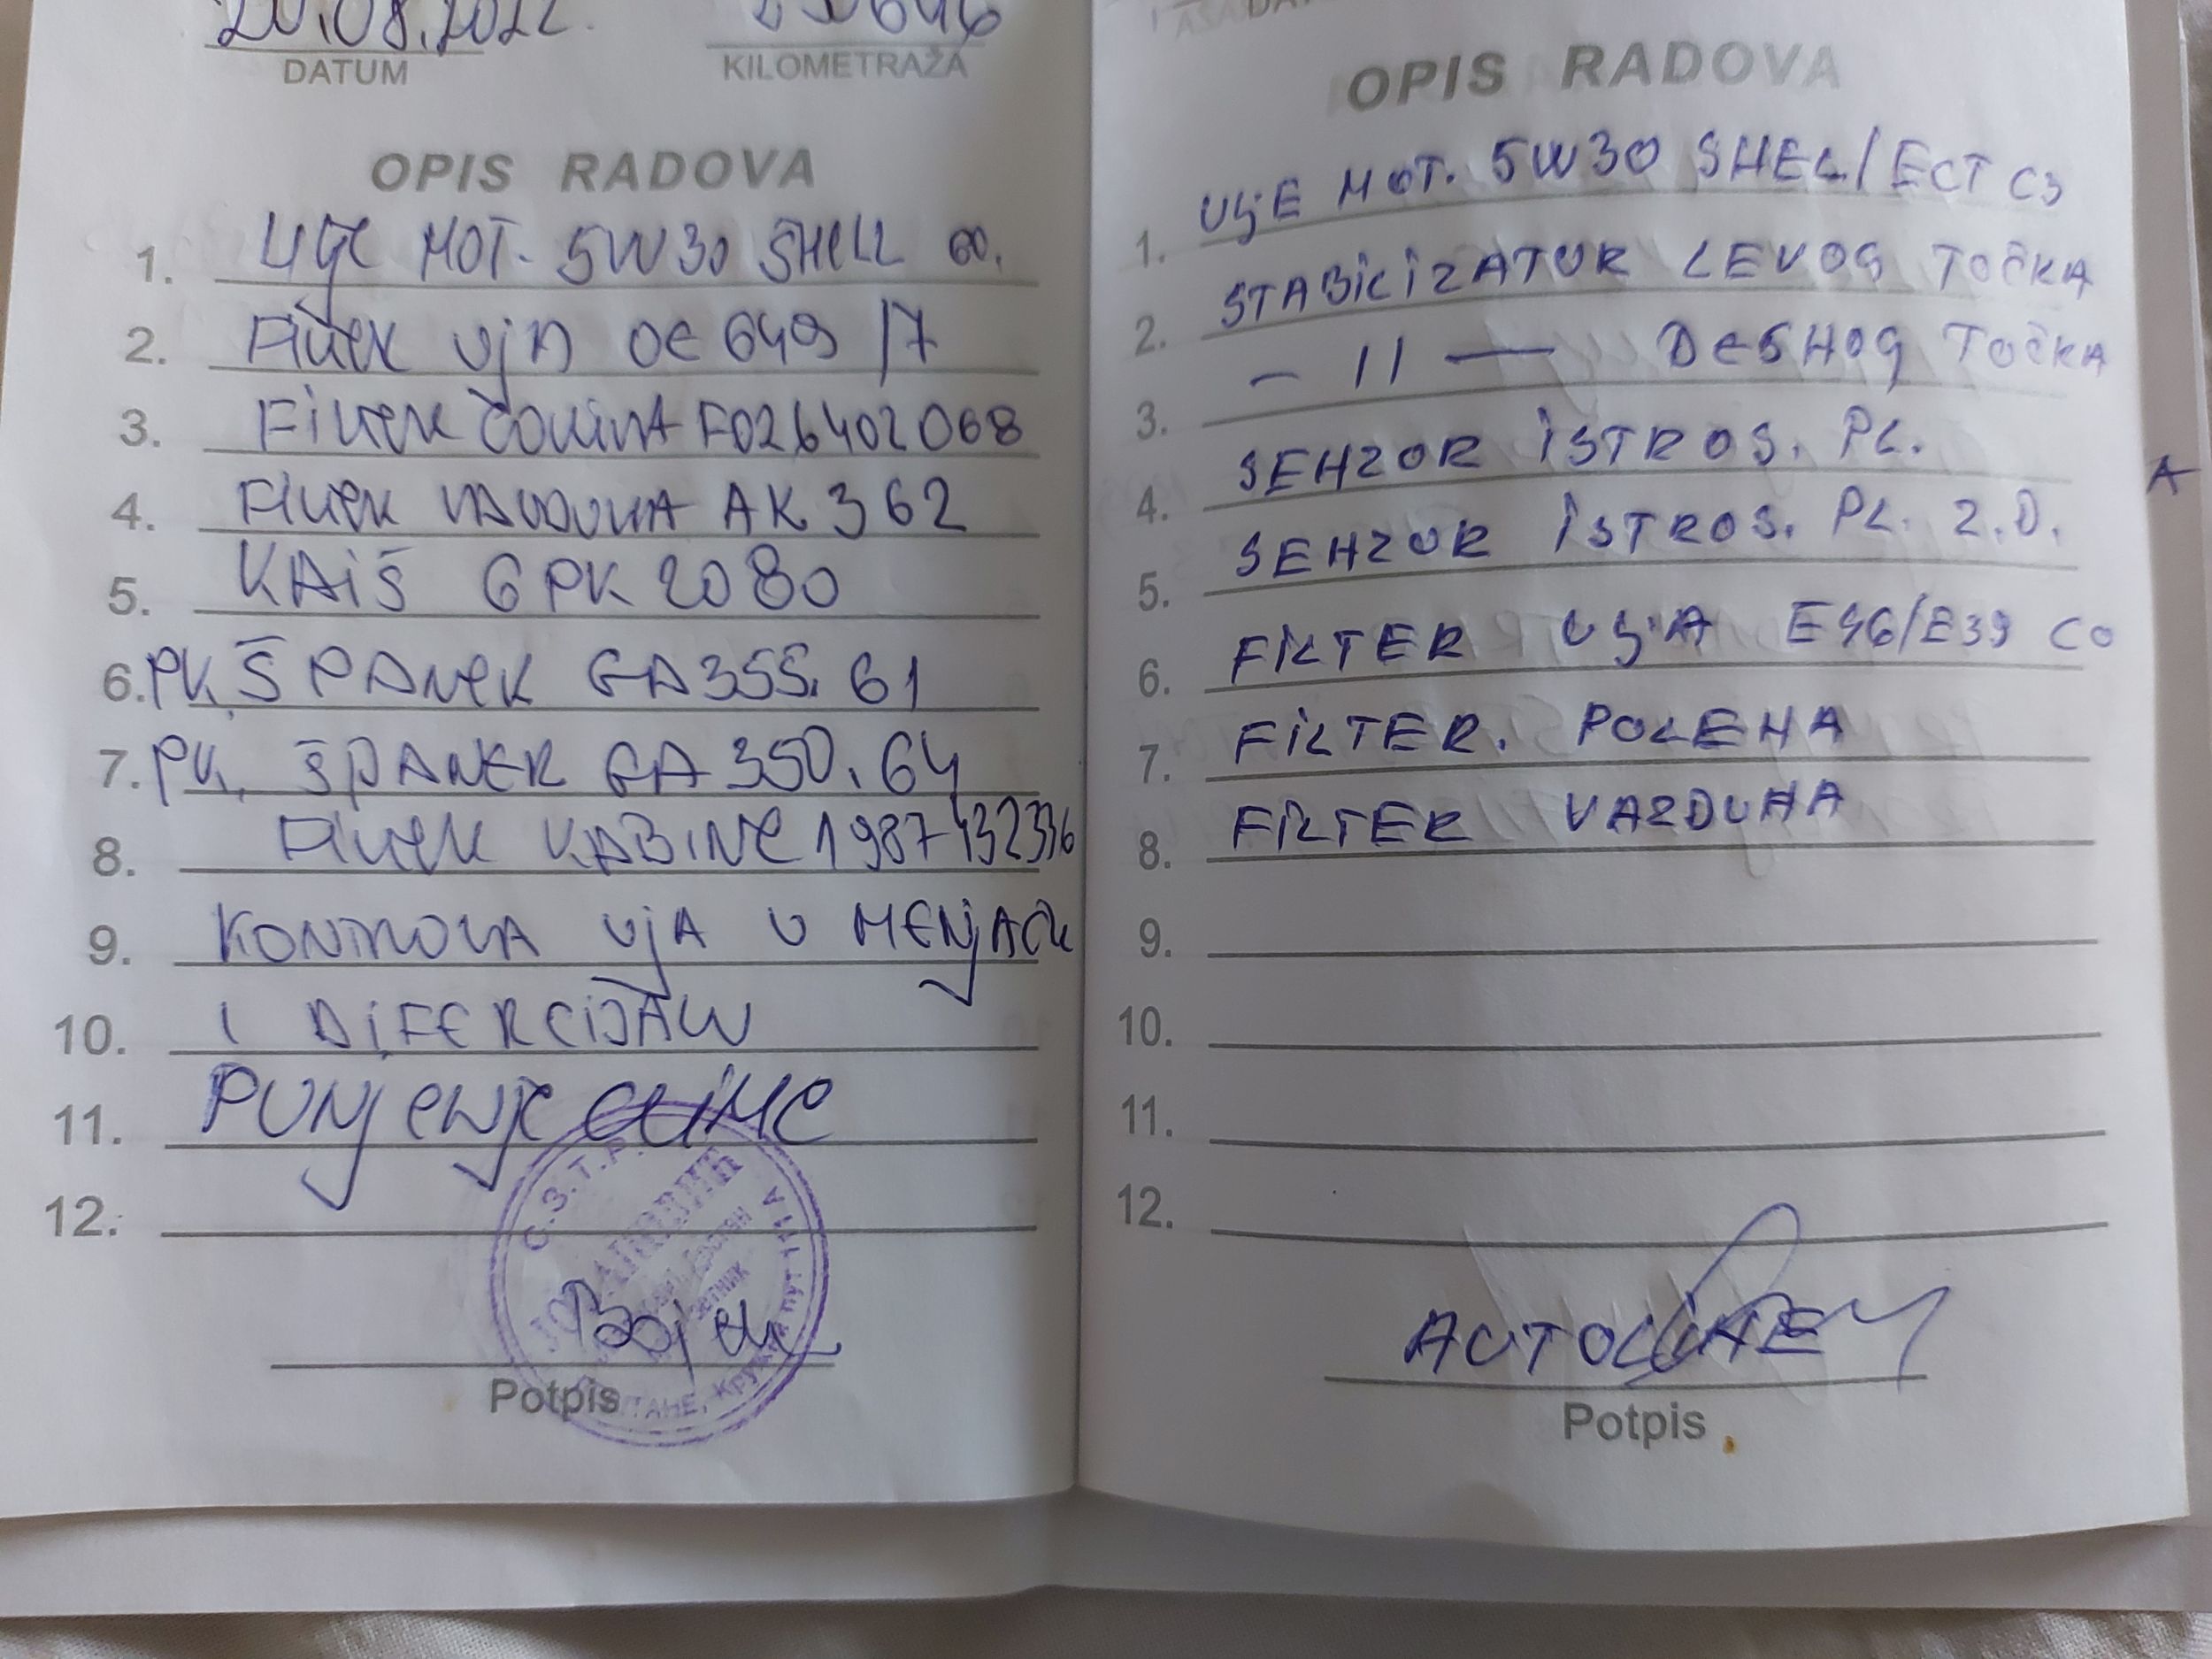 20.08.2022.
DATUM
KILOMETRAŽA
OPIS RADOVA
1. ULJE MOT. 5W30 SHELL
2. FILTER ULJA OC 649/7
3. FILTER GORIVA F026402068
4. FILTER VAZDUHA AK 362
5. KAIŠ 6PK 2080
6. PK. ŠPANER GA355.61
7. PK. ŠPANER GA350.64
8. FILTER KABINE 1987432336
9. KONTROLA ULJA U MENJAČU
10. I DIFERCIJALU
11. PUNJENJE KLIME
12.
Potpis
OPIS RADOVA
1. ULJE MOT. 5W30 SHEL/ECT C3
2. STABILIZATOR LEVOG TOČKA
3. — 11 — DESNOG TOČKA
4. SENZOR ISTROŠ. PL.
5. SENZOR ISTROŠ. PL. Z.D.
6. FILTER ULJA E46/E39 CO
7. FILTER. POLENA
8. FILTER VAZDUHA
9.
10.
11.
12.
Potpis
A